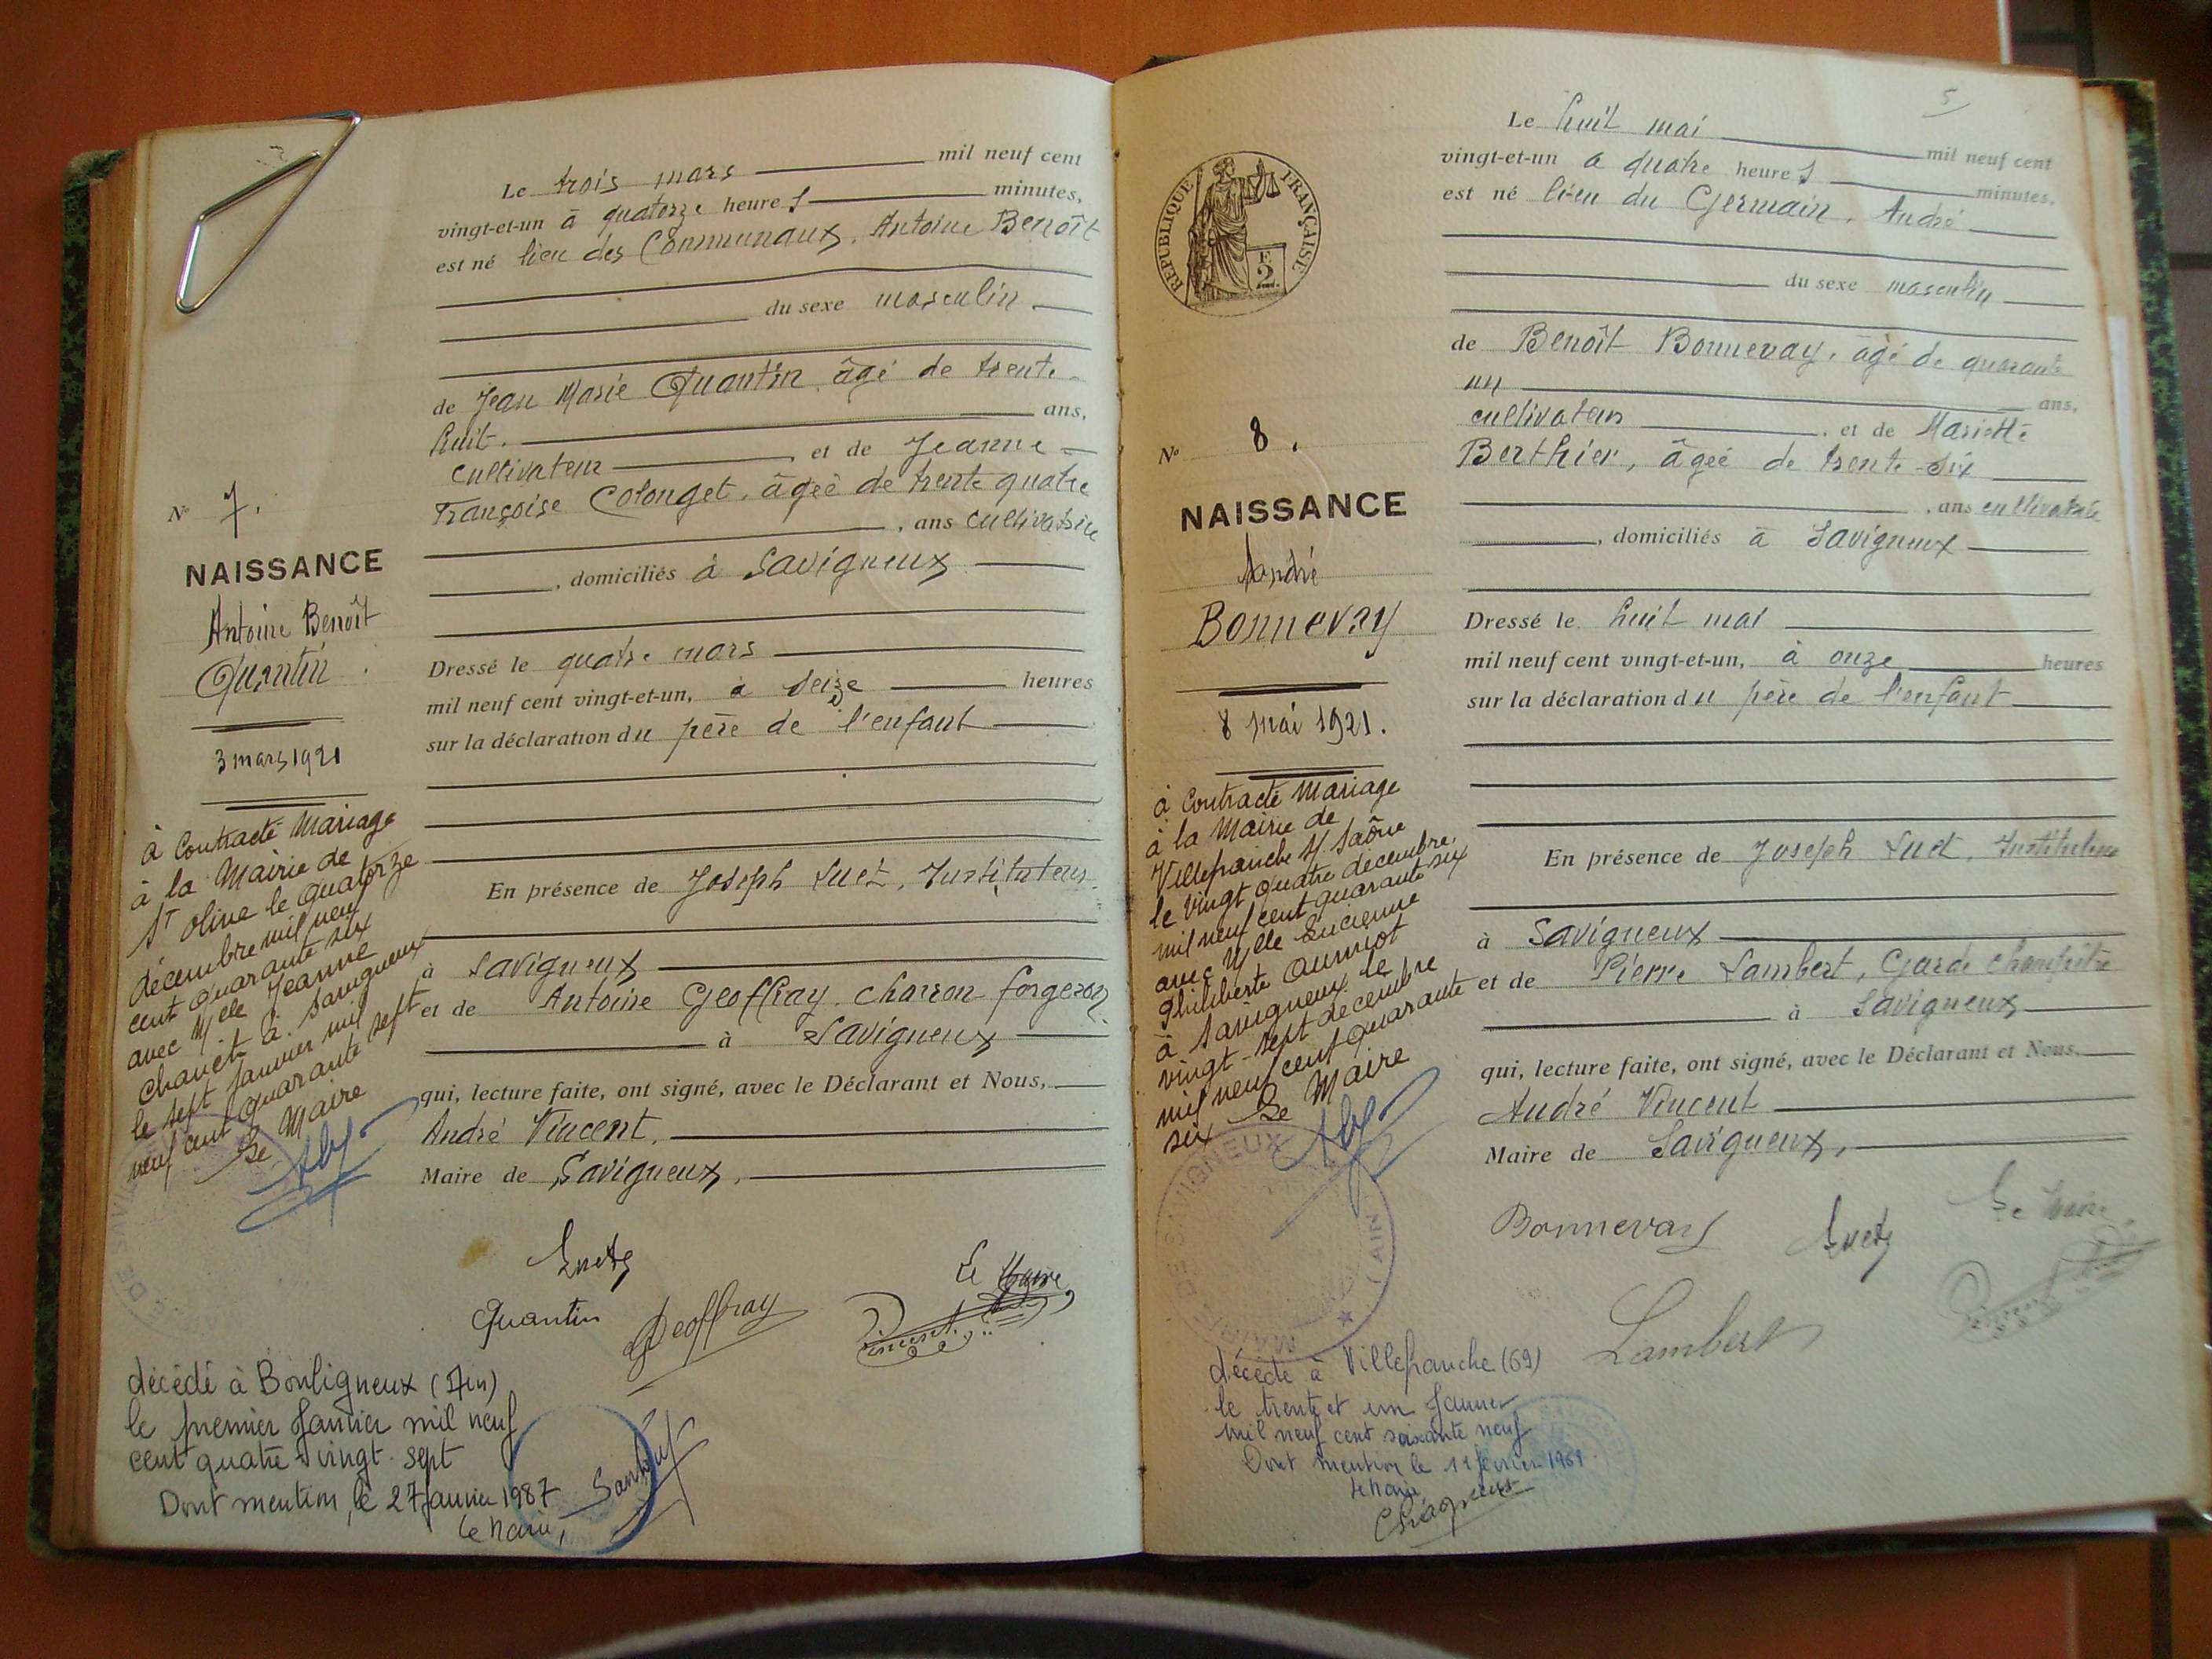 Le trois mars mil neuf cent
vingt-et-un à quatorze heures minutes,
est né lieu des Communaux, Antoine Benoît
du sexe masculin
de Jean Marie Quantin, âgé de trente
huit. ans,
cultivateur , et de Jeanne
Françoise Colonget, âgée de trente quatre
, ans cultivatrice
, domiciliés à Savigneux
Dressé le quatre mars
mil neuf cent vingt-et-un, à seize heures
sur la déclaration du père de l'enfant
En présence de Joseph Suetz, Instituteur
à Savigneux
et de Antoine Geoffray charron forgeron
à Savigneux
qui, lecture faite, ont signé, avec le Déclarant et Nous,
André Vincent,
Maire de Savigneux,
Quantin Geoffray
Le Maire
Vincent
No 7.
NAISSANCE
Antoine Benoît
Quantin
3 mars 1921
à Contracté Mariage
à la Mairie de
St Olive le quatorze
décembre mil neuf
cent quarante six
avec Mlle Jeanne
à Savigneux
le sept Janvier mil
neuf cent quarante sept
Le Maire
décédé à Bouligneux (Ain)
le premier Janvier mil neuf
cent quatre vingt-sept
Dont mention, le 27 Janvier 1987
Le Maire,
5
Le huit mai mil neuf cent
vingt-et-un à quatre heures minutes,
est né lieu du Germain, André
du sexe masculin
de Benoît Bonnevay, âgé de quarante
un ans,
cultivateur , et de Mariette
Berthier, âgée de trente-six
, ans cultivatrice
, domiciliés à Savigneux
Dressé le huit mai
mil neuf cent vingt-et-un, à onze heures
sur la déclaration du père de l'enfant
En présence de Joseph Suetz, Instituteur
à Savigneux
et de Pierre Lambert, Garde champêtre
à Savigneux
qui, lecture faite, ont signé, avec le Déclarant et Nous,
André Vincent
Maire de Savigneux,
Bonnevay
Le Maire
Lambert
Vincent
REPUBLIQUE FRANÇAISE
2
No 8.
NAISSANCE
André
Bonnevay
8 mai 1921.
à Contracté Mariage
à la Mairie de
Villefranche s/ Saône
le vingt quatre décembre
mil neuf cent quarante six
avec Mlle Lucienne
Philiberte
à Savigneux le
vingt-sept décembre
mil neuf cent quarante
six Le Maire
MAIRIE DE SAVIGNEUX (AIN)
décédé à Villefranche (69)
le trente et un Janvier
mil neuf cent soixante neuf
Dont mention le 11 février 1969.
Le Maire